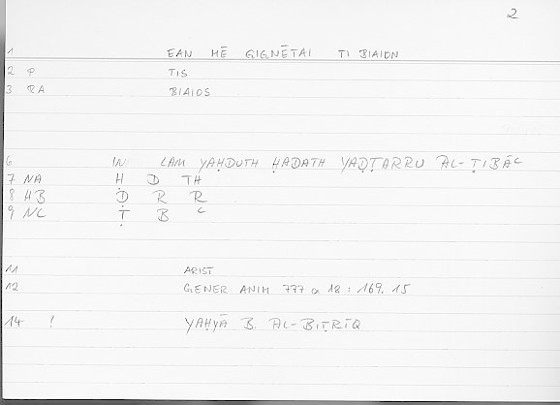 2
1 EAN MĒ GIGNĒTAI TI BIAION
2 P TIS
3 RA BIAIOS
6 IN LAM YAḤDUTH ḤADATH YAḌṬARRU AL-ṬIBĀC
7 NA Ḥ D TH
8 HB Ḍ R R
9 NC Ṭ B C
11 ARIST
12 GENER ANIM 777 a 18 : 169.15
14 ! YAḤYĀ B. AL-BIṬRĪQ